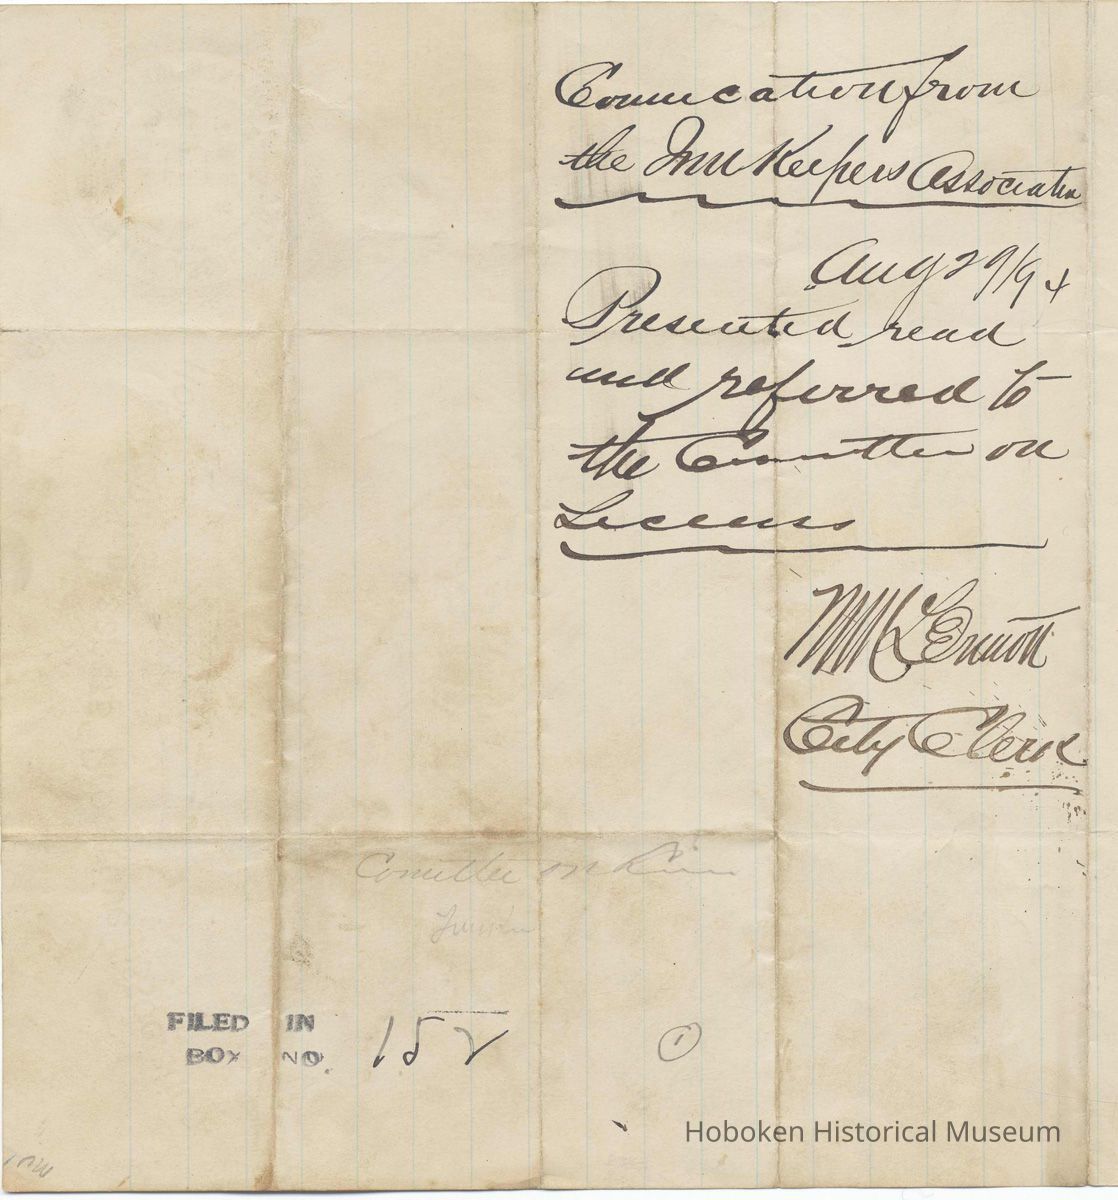 Comucation from
the Inn Keepers Association
Aug 29/94
Presented read
and referred to
the Committee on
Licens
City Clerk
Comittee on
FILED IN
BOX NO. 152
1
Hoboken Historical Museum